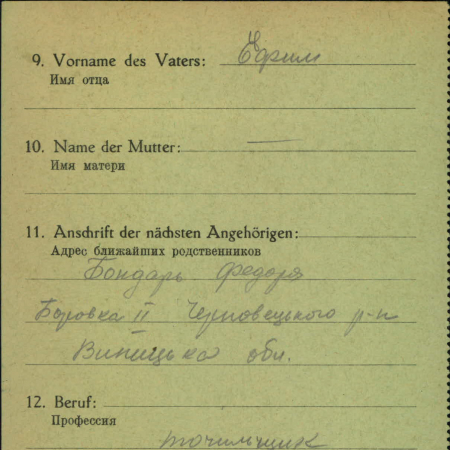 9. Vorname des Vaters: Ефим
Имя отца
10. Name der Mutter: —
Имя матери
11. Anschrift der nächsten Angehörigen:
Адрес ближайших родственников
Бондарь Федора
Боровка II Черновецького р-н
Виницька обл.
12. Beruf:
Профессия
точильщик